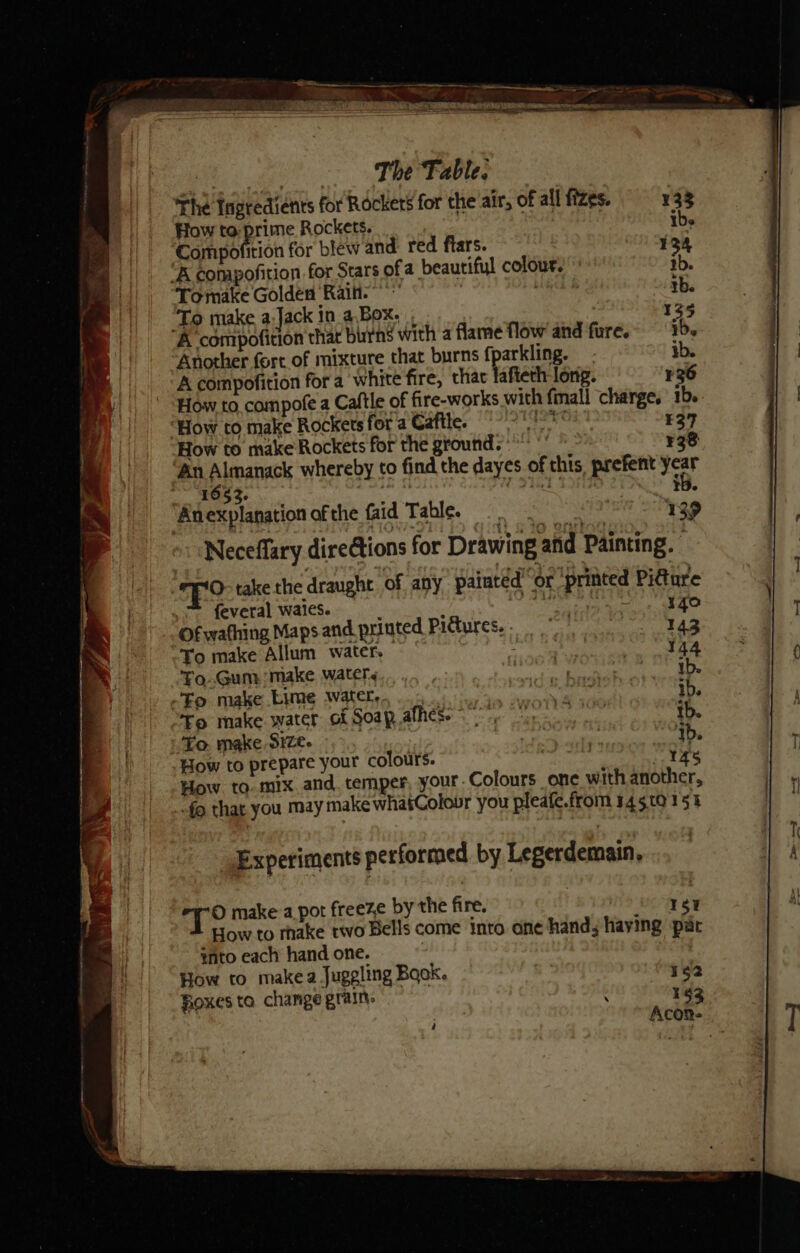 The Table.
The Ingredients for Rockets for the air, of all ſizes. 133
How to prime Rockets. ib.
Compoſition for blew and red ſtars. 134
A compoſition for Stars of a beautiful colour. ib.
To make Golden Rain. ib.
To make a Jack in a Box. 135
A compoſition that burns with a flame ſlow and ſure. ib.
Another ſort of mixture that burns ſparkling. ib.
A compoſition for a white fire, that laſteth long. 136
How to compoſe a Caſtle of fire-works with ſmall charge. ib.
How to make Rockets for a Caſtle. 137
How to make Rockets for the ground. 138
An Almanack whereby to find the dayes of this, preſent year
1653. ib.
An explanation of the ſaid Table. 139
Neceſſary directions for Drawing and Painting.
TO take the draught of any painted or printed Picture
ſeveral waies. 140
Of waſhing Maps and printed Pictures. 143
To make Allum water. 144
To Gum make water. ib.
To make Lime water. ib.
To make water of Soap aſhes. ib.
To make Size. ib.
How to prepare your colours. 145
How to mix and temper your Colours one with another,
ſo that you may make what Colour you pleaſe. from 145 to 151
Experiments performed by Legerdemain.
TO make a pot freeze by the fire. 151
How to make two Bells come into one hand, having put
into each hand one.
How to make a Juggling Book. 152
Boxes to change grain. 153
A con-